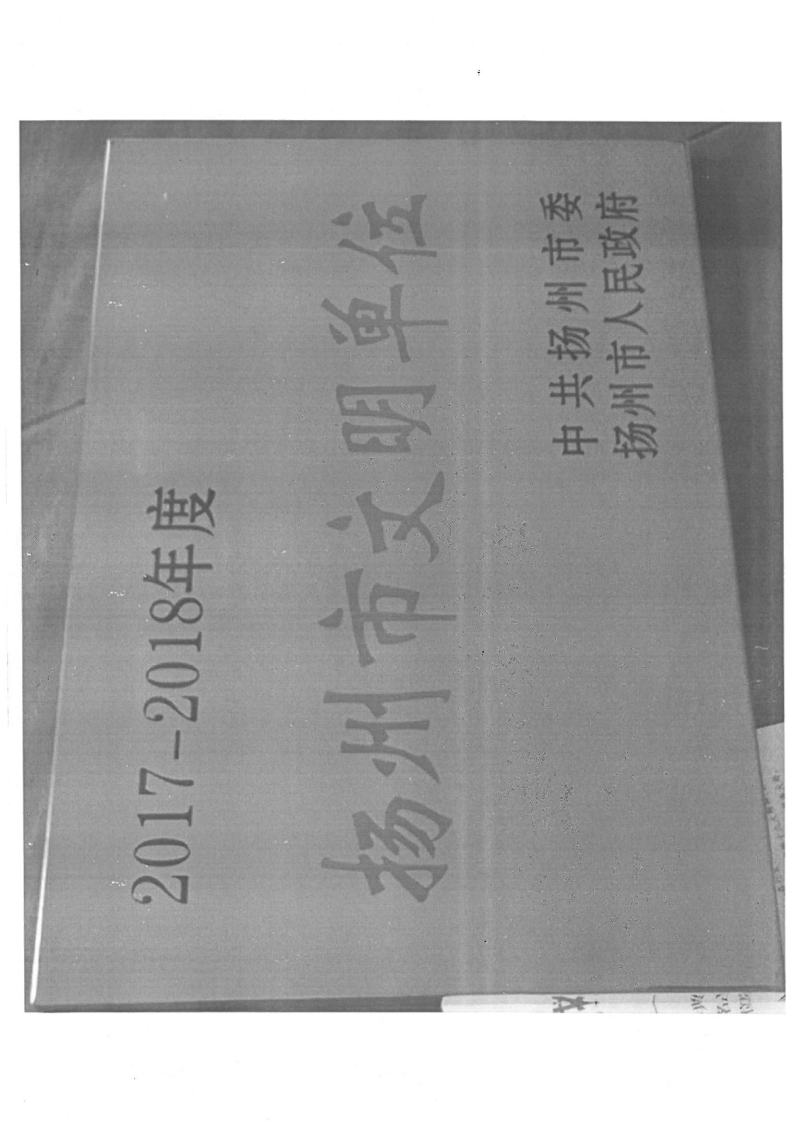 2017-2018年度
扬州市文明单位
中共扬州市委
扬州市人民政府